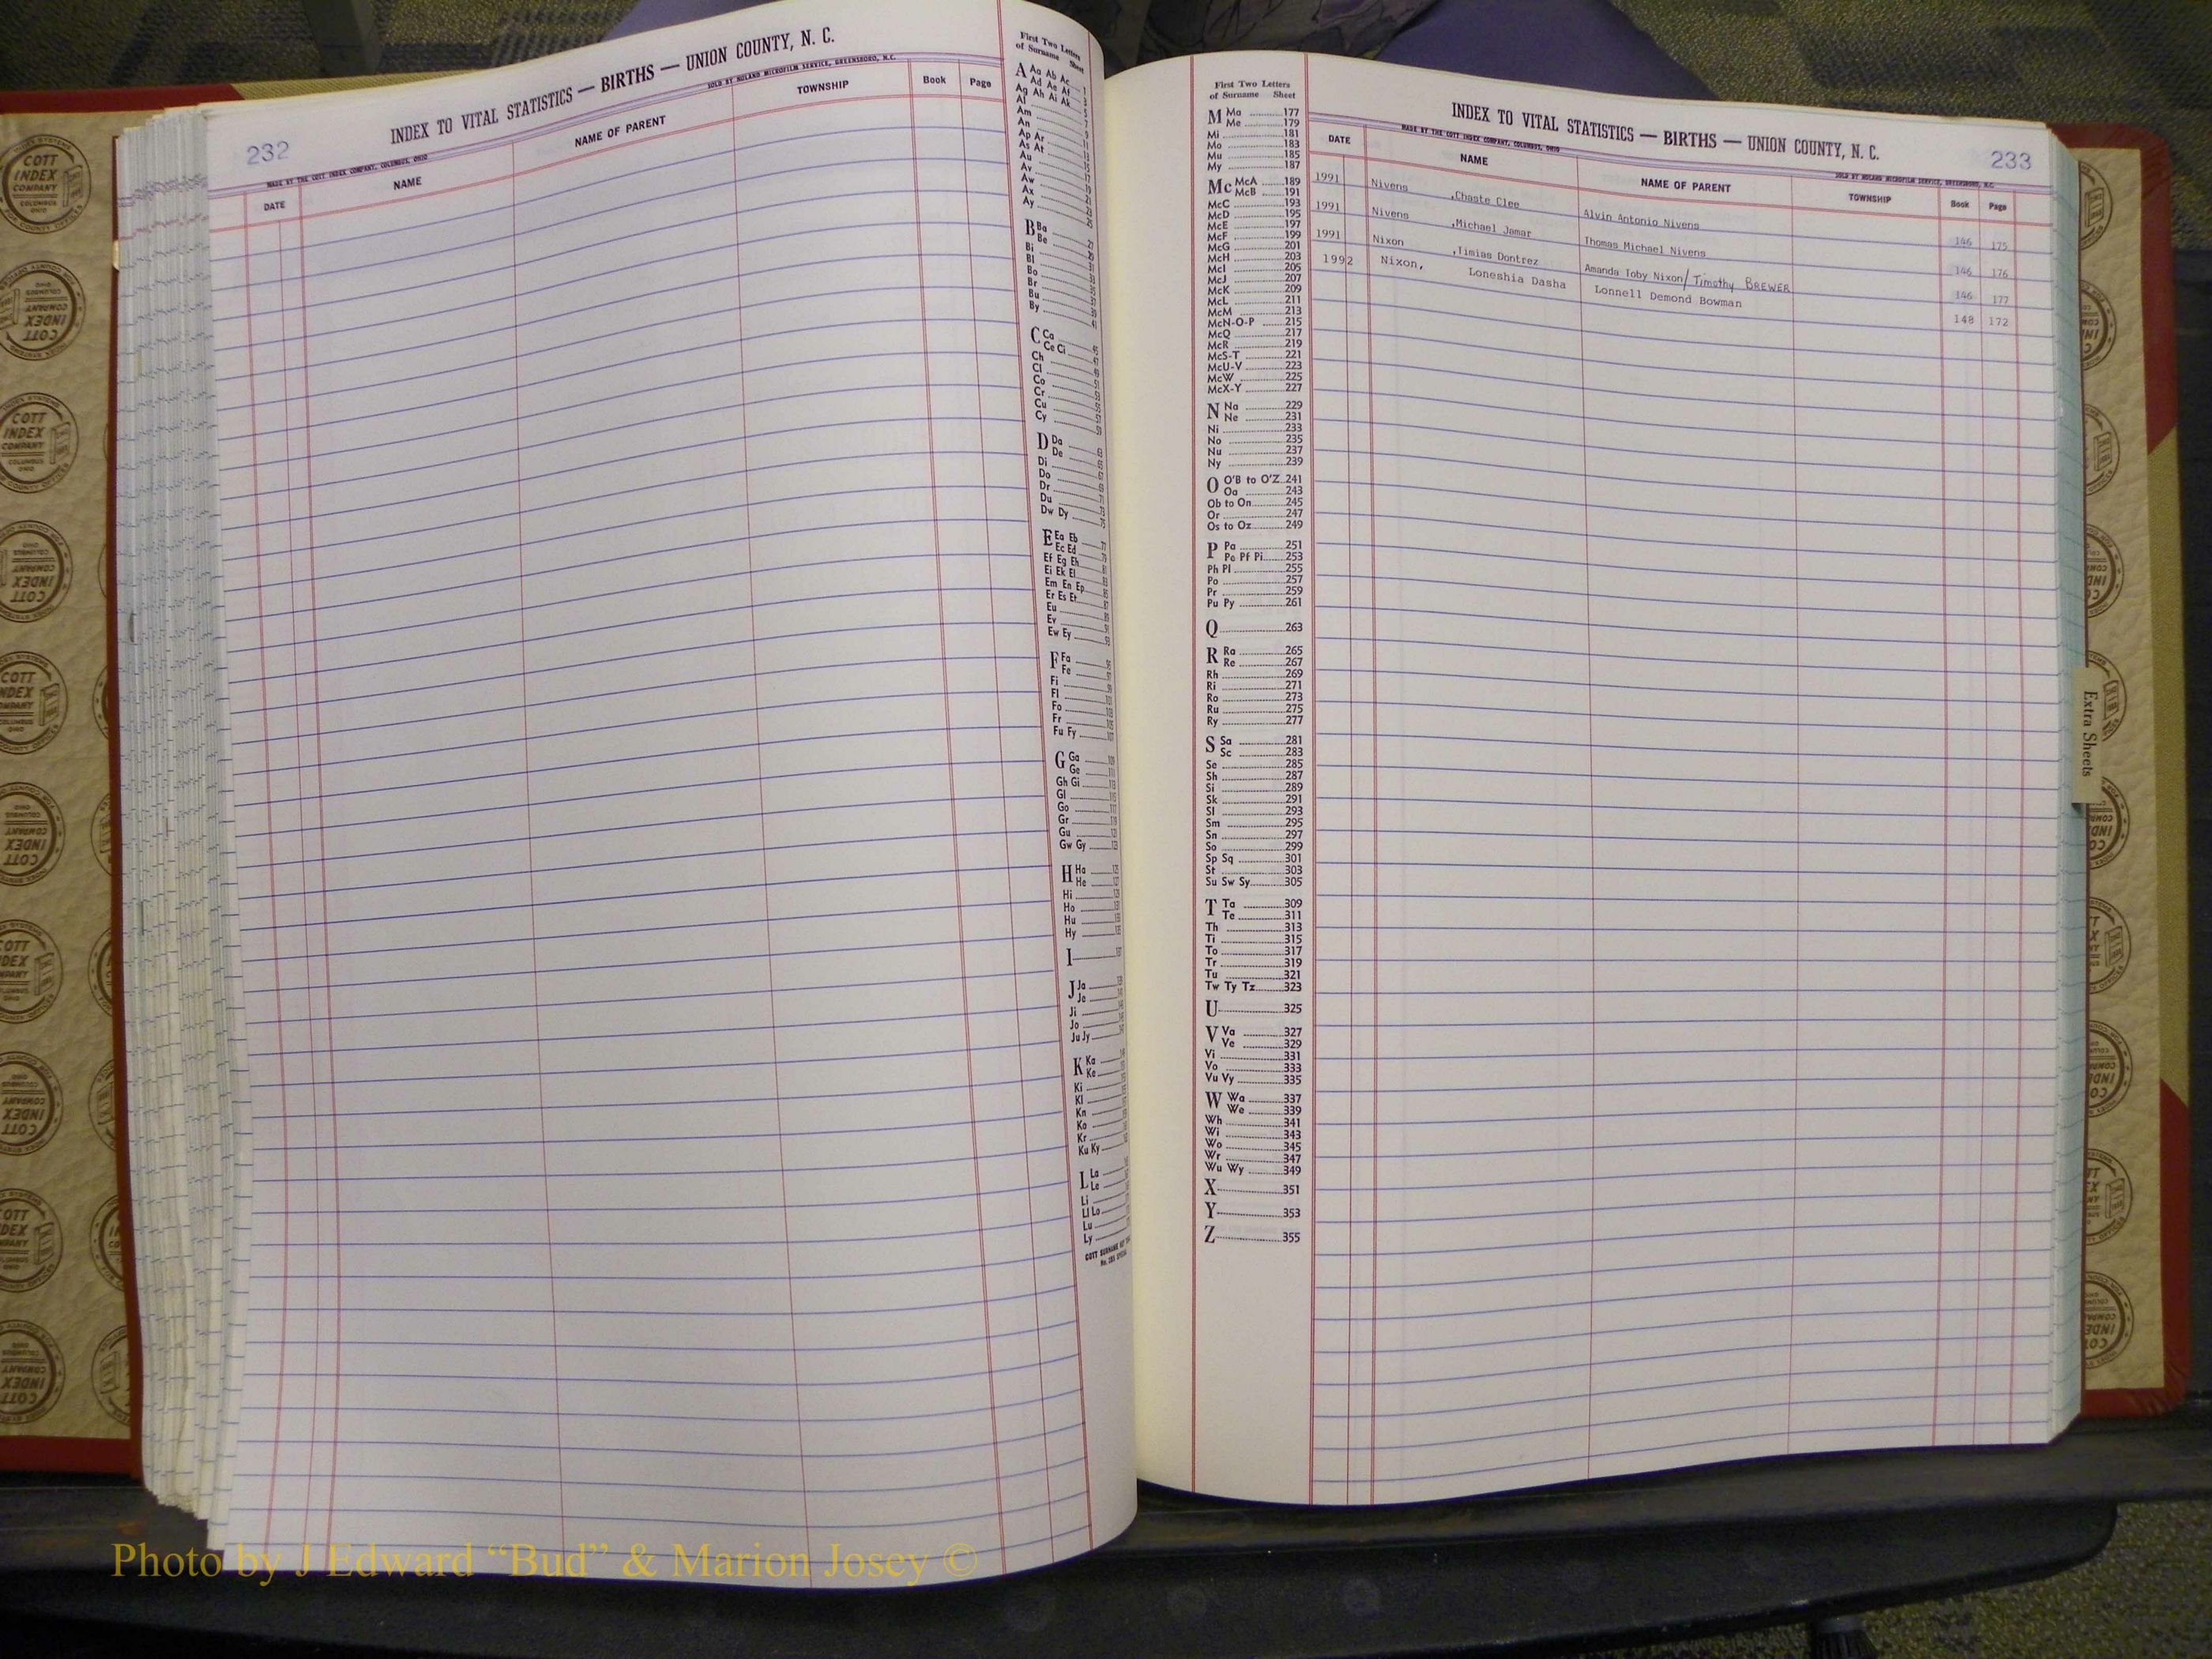 232
INDEX TO VITAL STATISTICS — BIRTHS — UNION COUNTY, N. C.
MADE BY THE COTT INDEX COMPANY, COLUMBUS, OHIO
SOLD BY NOLAND MICROFILM SERVICE, GREENSBORO, N.C.
DATE NAME NAME OF PARENT TOWNSHIP Book Page
First Two Letters
of Surname Sheet
A Aa Ab Ac
Ad Ae Af
Ag Ah Ai Ak
Al
Am
An
Ap Ar
As At
Au
Av
Aw
Ax
Ay
B Ba
Be
Bi
Bl
Bo
Br
Bu
By
C Ca
Ce Ci
Ch
Cl
Co
Cr
Cu
Cy
D Da
De
Di
Do
Dr
Du
Dw Dy
E Ea Eb
Ec Ed
Ef Eg Eh
Ei Ek El
Em En Ep
Er Es Et
Eu
Ev
Ew Ey
F Fa
Fe
Fi
Fl
Fo
Fr
Fu Fy
G Ga
Ge
Gh Gi
Gl
Go
Gr
Gu
Gw Gy
H Ha
He
Hi
Ho
Hu
Hy
I
J Ja
Je
Ji
Jo
Ju Jy
K Ka
Ke
Ki
Kl
Kn
Ko
Kr
Ku Ky
L La
Le
Li
Ll Lo
Lu
Ly
First Two Letters
of Surname Sheet
M Ma 177
Me 179
Mi 181
Mo 183
Mu 185
My 187
Mc McA 189
McB 191
McC 193
McD 195
McE 197
McF 199
McG 201
McH 203
McI 205
McJ 207
McK 209
McL 211
McM 213
McN-O-P 215
McQ 217
McR 219
McS-T 221
McU-V 223
McW 225
McX-Y 227
N Na 229
Ne 231
Ni 233
No 235
Nu 237
Ny 239
O O'B to O'Z 241
Oa 243
Ob to On 245
Or 247
Os to Oz 249
P Pa 251
Pe Pf Pi 253
Ph Pl 255
Po 257
Pr 259
Pu Py 261
Q 263
R Ra 265
Re 267
Rh 269
Ri 271
Ro 273
Ru 275
Ry 277
S Sa 281
Sc 283
Se 285
Sh 287
Si 289
Sk 291
Sl 293
Sm 295
Sn 297
So 299
Sp Sq 301
St 303
Su Sw Sy 305
T Ta 309
Te 311
Th 313
Ti 315
To 317
Tr 319
Tu 321
Tw Ty Tz 323
U 325
V Va 327
Ve 329
Vi 331
Vo 333
Vu Vy 335
W Wa 337
We 339
Wh 341
Wi 343
Wo 345
Wr 347
Wu Wy 349
X 351
Y 353
Z 355
INDEX TO VITAL STATISTICS — BIRTHS — UNION COUNTY, N. C.
233
MADE BY THE COTT INDEX COMPANY, COLUMBUS, OHIO
SOLD BY NOLAND MICROFILM SERVICE, GREENSBORO, N.C.
DATE NAME NAME OF PARENT TOWNSHIP Book Page
1991 Nivens ,Chaste Clee Alvin Antonio Nivens 146 175
1991 Nivens ,Michael Jamar Thomas Michael Nivens 146 176
1991 Nixon ,Timias Dontrez Amanda Toby Nixon/ Timothy BREWER 146 177
1992 Nixon, Loneshia Dasha Lonnell Demond Bowman 148 172
Extra Sheets
COTT
INDEX
COMPANY
COLUMBUS
OHIO
Photo by J Edward “Bud” & Marion Josey ©